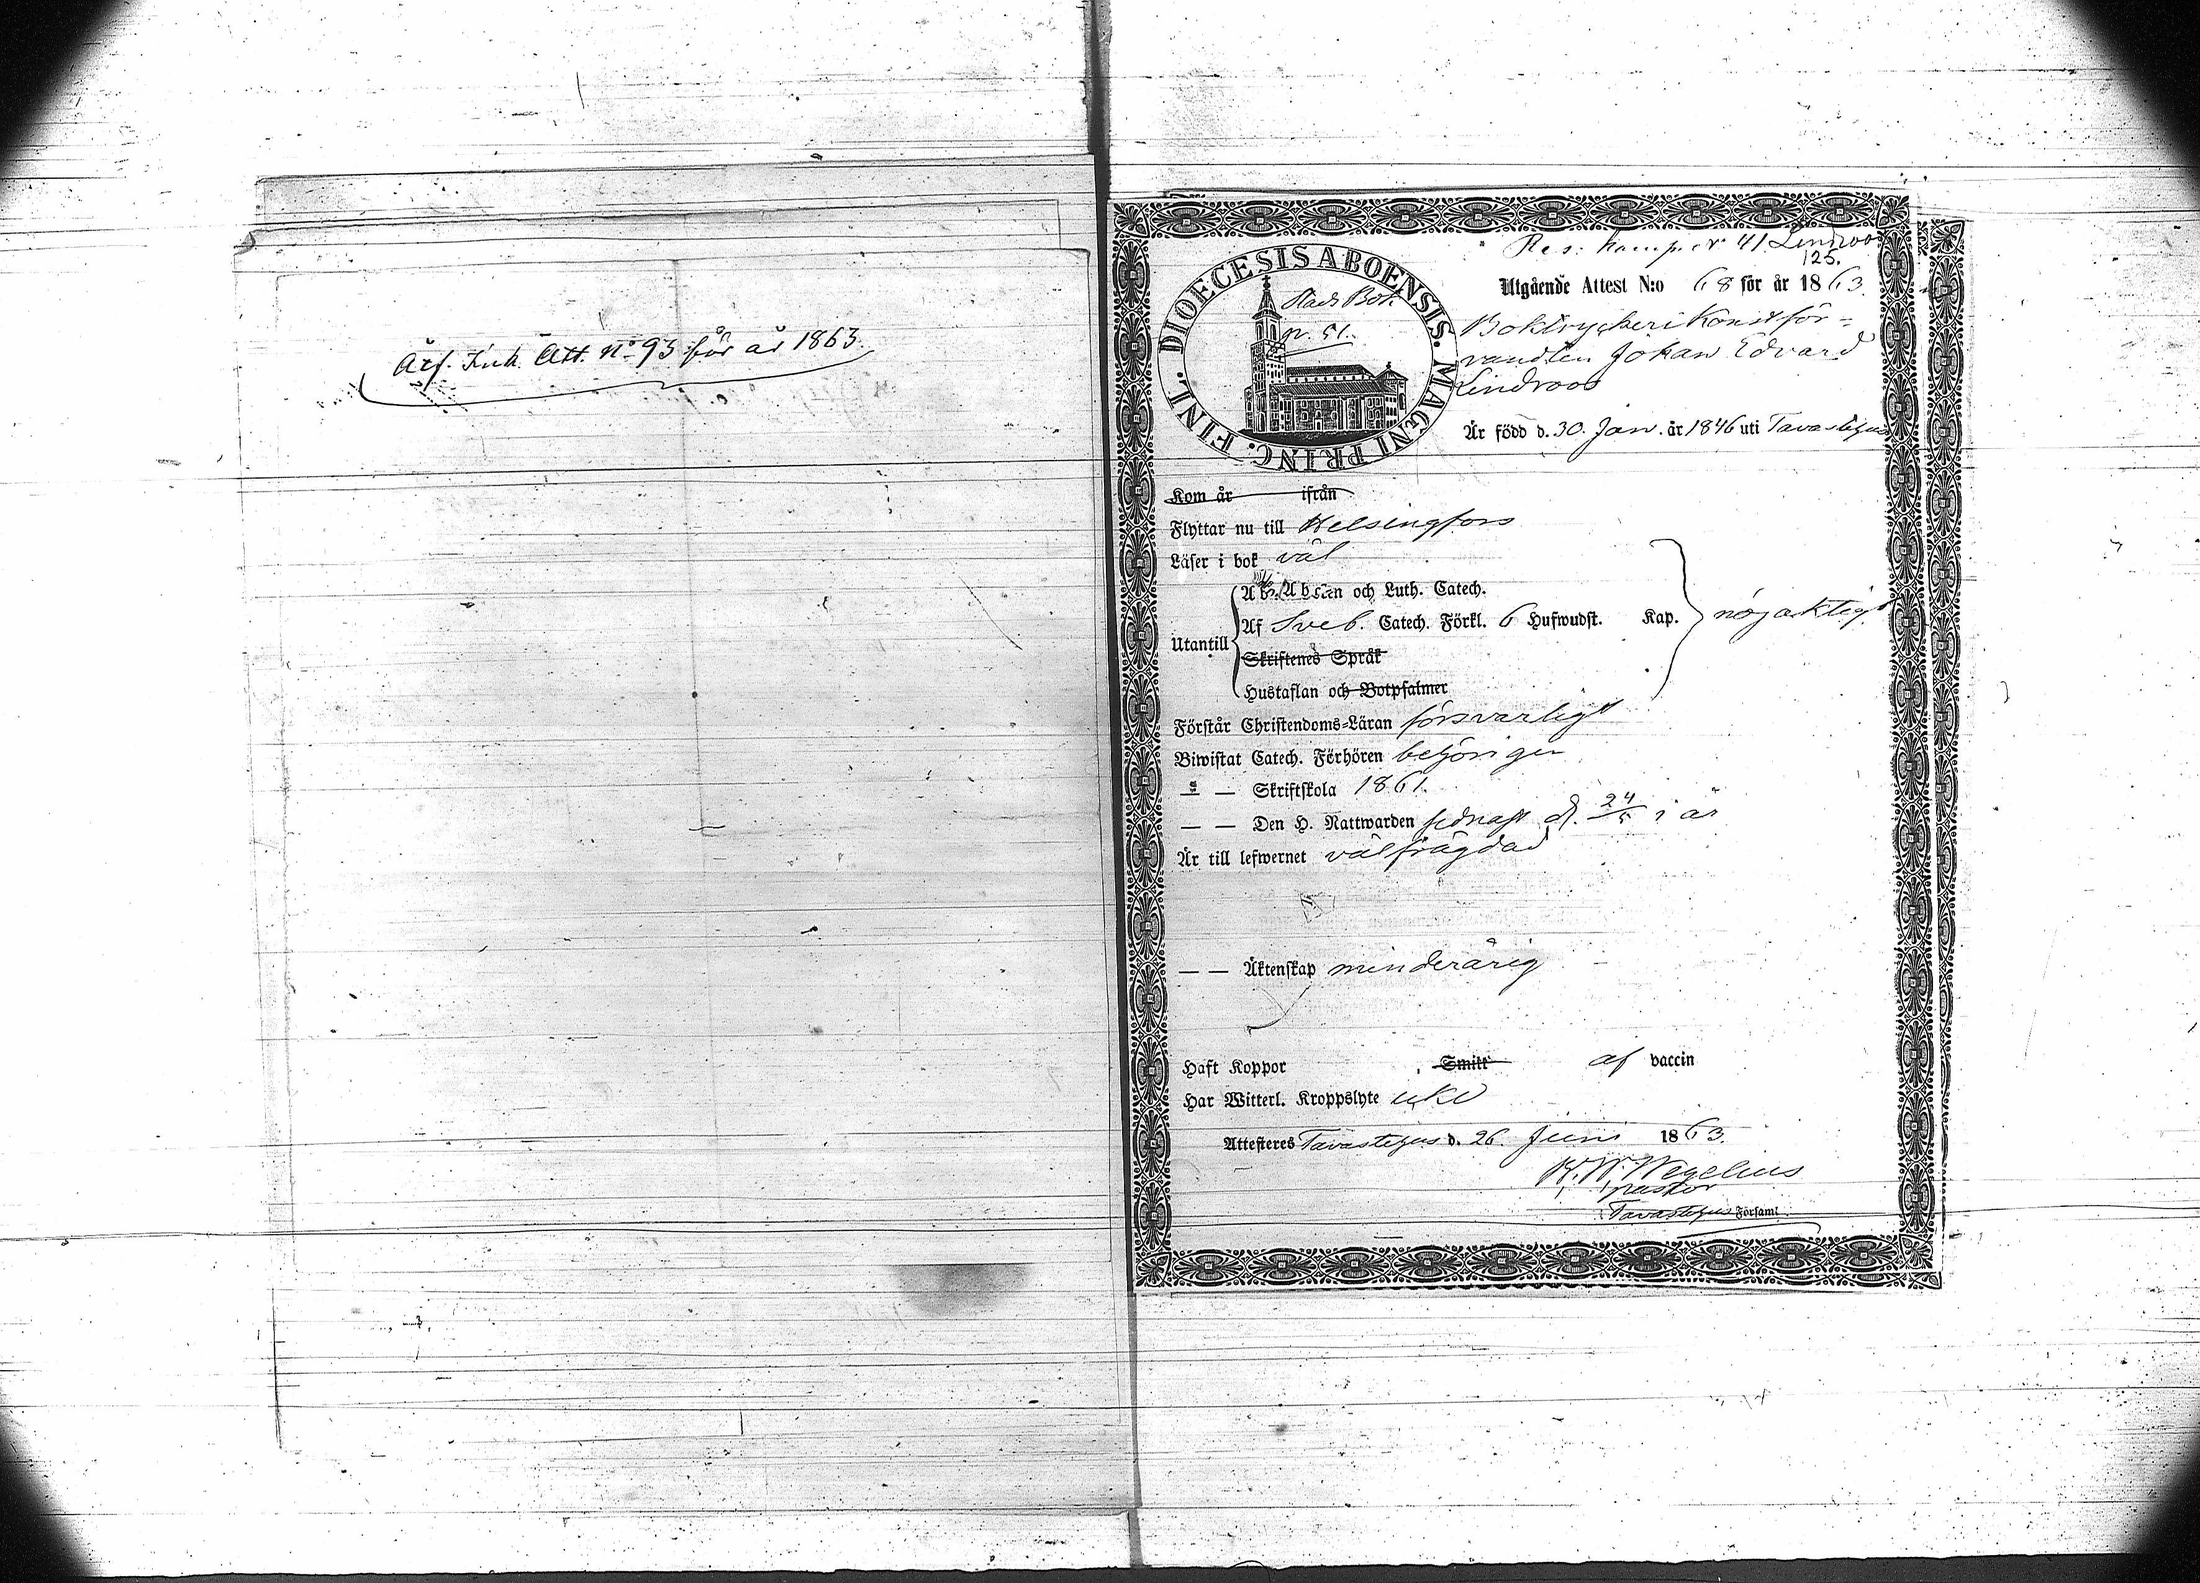 Att. No 93 för år 1863.
Lindroos
125.
DIOECESIS ABOENSIS. MAGNI PRINC. FINL.
p. 51.
Utgående Attest N:o 68 för år 1863.
Boktryckerikonstför-
vandten Johan Edvard
Lindroos
Är född d. 30. Jan. år 1846 uti Tavastehus
Kom år ifrån
Flyttar nu till Helsingfors
Läser i bok väl
och Luth. Catech.
Af Sveb. Catech. Förkl. 6 Hufwudst. Kap. nöjaktigt.
Utantill
Skriftenes Språk
Hustaflan och Botpsalmer
Förstår Christendoms-Läran försvarligt
Biwistat Catech. Förhören behörigen
— Skriftskola 1861.
— — Den H. Nattwarden sednast d. 24/5 i år
Är till lefwernet välfrägdad
— — Äktenskap minderårig
Haft Koppor Smitt af vaccin
Har Witterl. Kroppslyte icke
Attesteres Tavastehus d. 26. Juni 1863.
K. W. Wegelius
pastor
Tavastehus Församl.